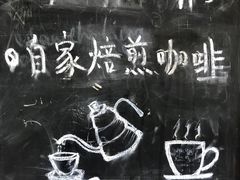 自家焙煎咖啡